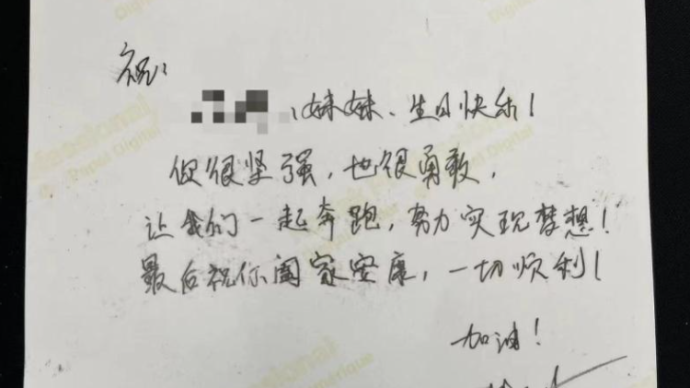 祝：
妹妹、生日快乐！
你很坚强，也很勇敢，
让我们一起奔跑，努力实现梦想！
最后祝你阖家安康，一切顺利！
加油！